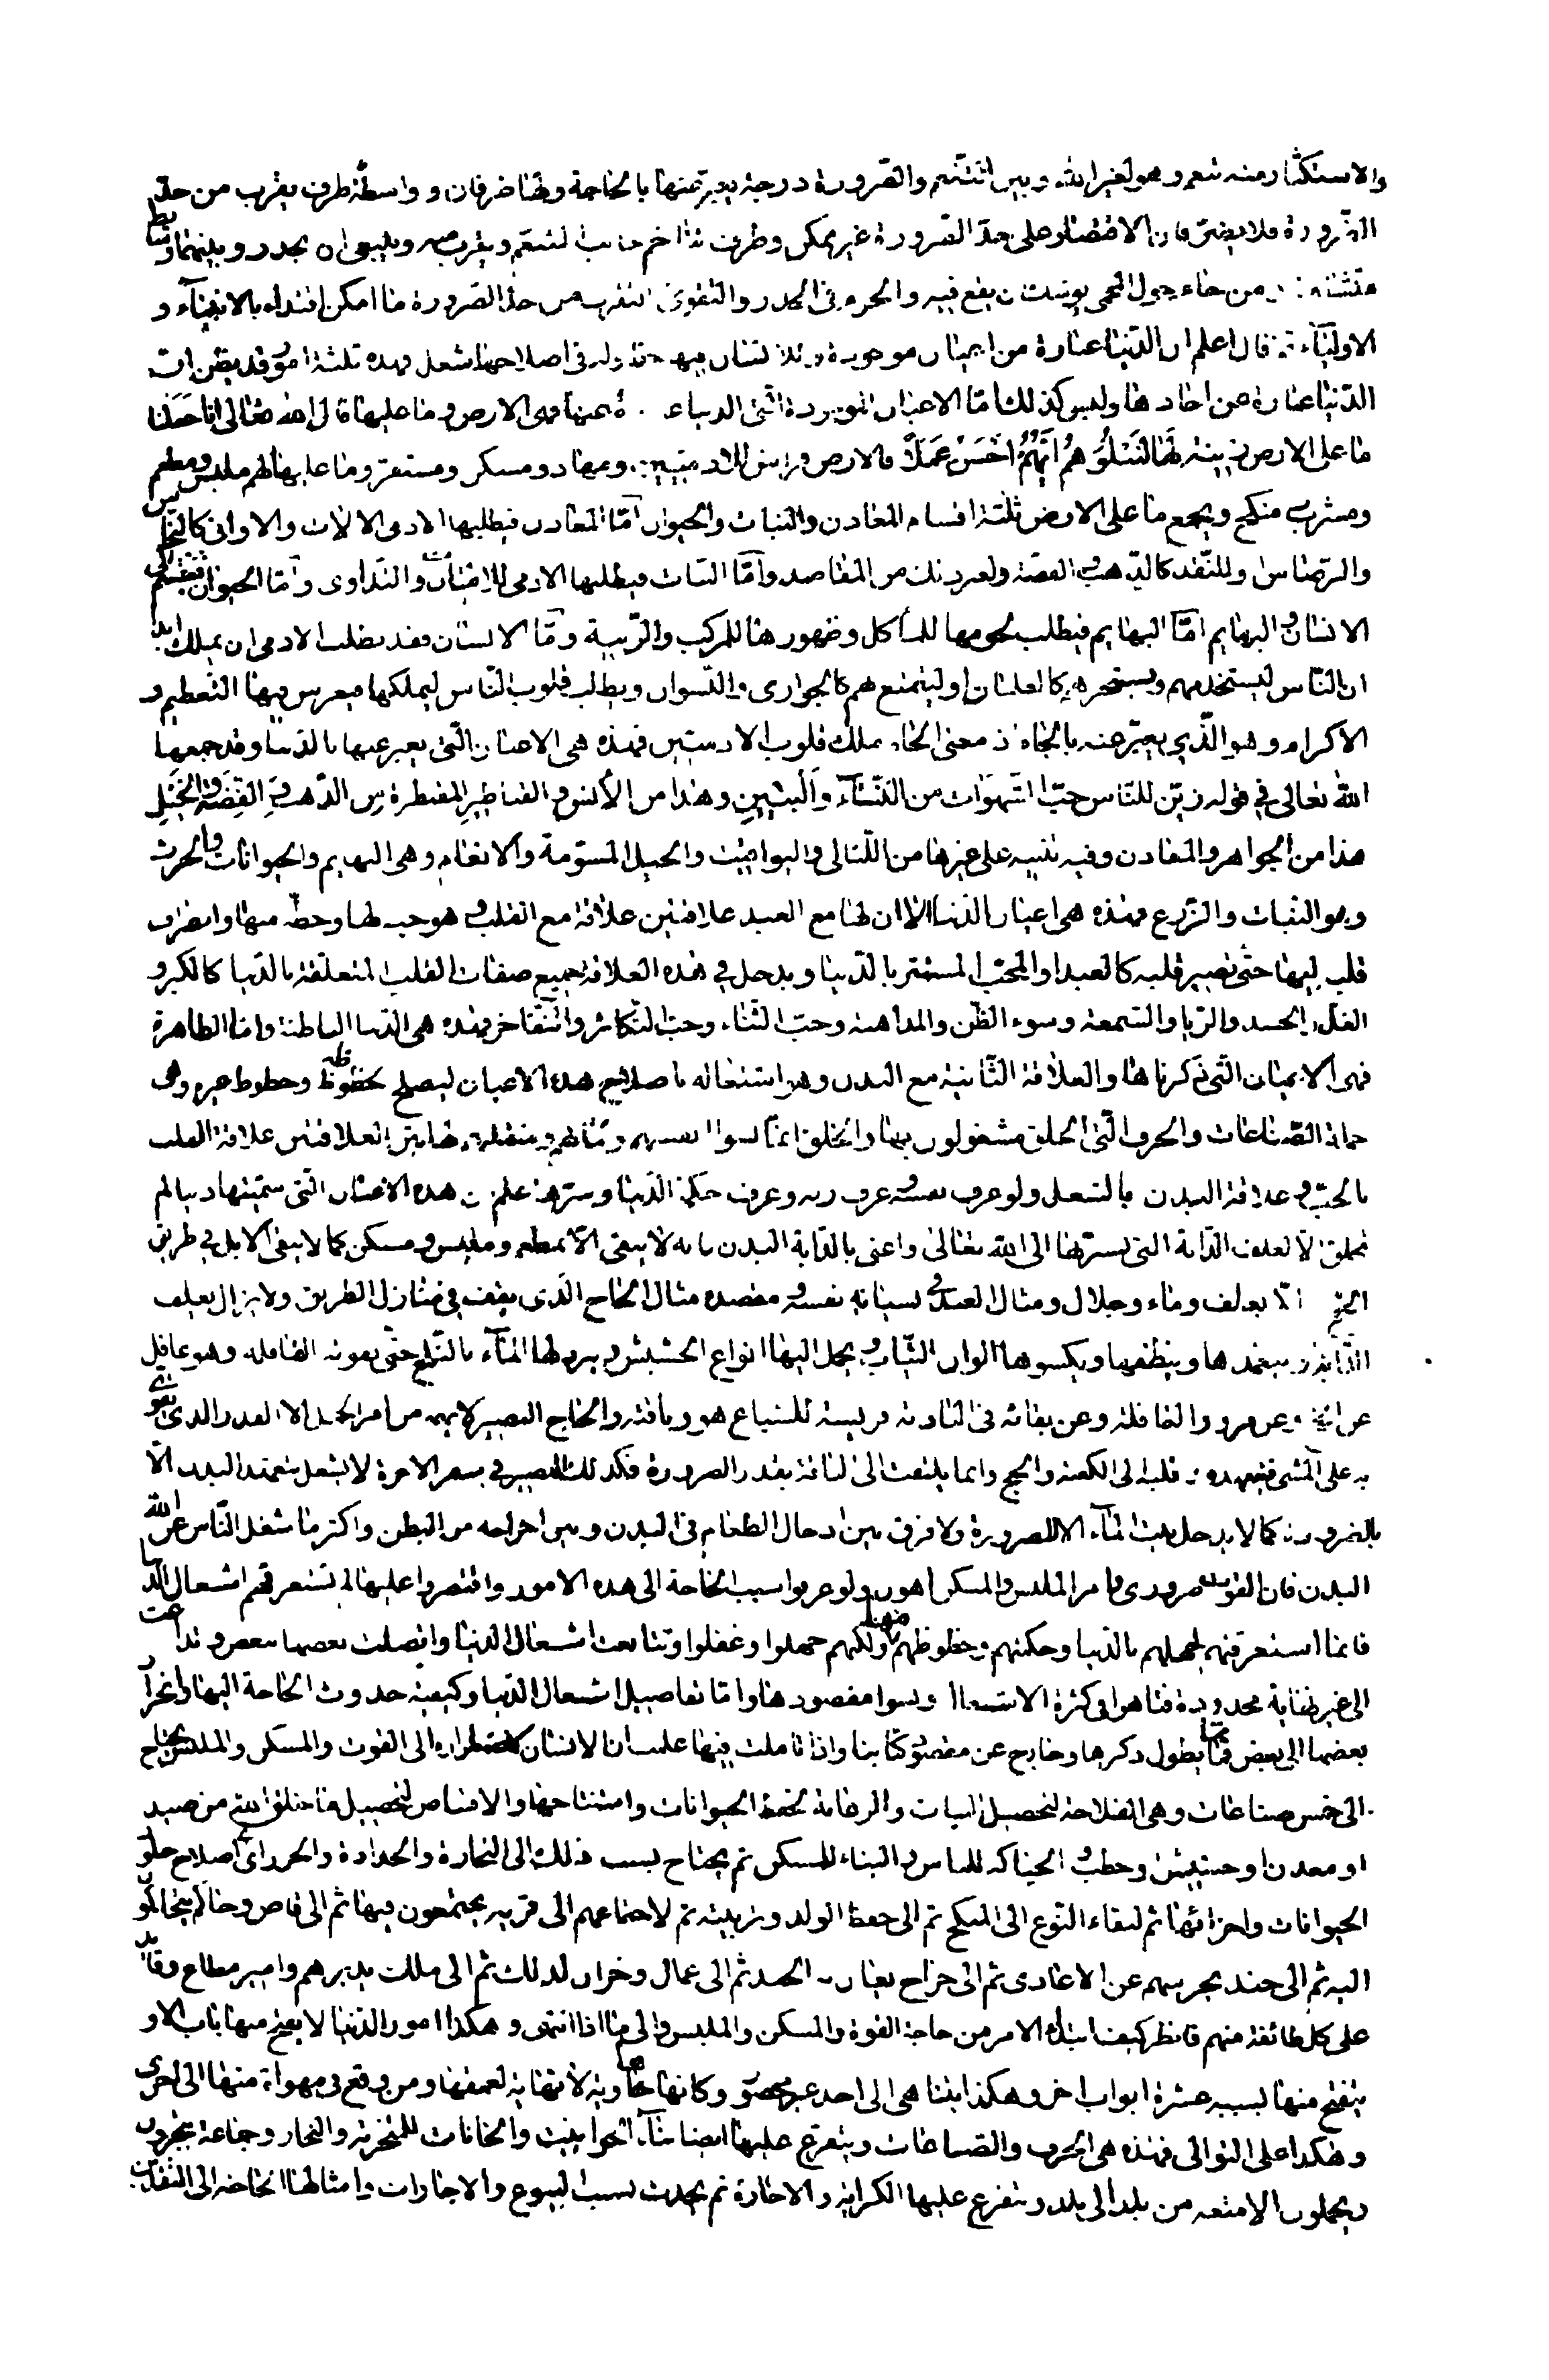 والاستكثار منه تنعم وهو لغير الله وبين التنعم والضرورة درجة يعبر عنها بالحاجة ولها طرفان وواسطة طرف يقرب من حد
الضرورة فلا يضر فان الاقتصار على حد الضرورة غير ممكن وطرف تزاحم جانب التنعم ويقرب منه وينبغي ان يحذر وبينهما وسائط
متشابهة ومن حام حول الحمى يوشك ان يقع فيه والحزم في الحذر والتقوى والتقرب من حد الضرورة ما امكن اقتداء بالانبياء و
الاولياء ثم قال اعلم ان الدنيا عبارة من اعيان موجودة وللانسان فيها حظ وله في اصلاحها شغل فهذه ثلثة امور قد يظن ان
الدنيا عبارة عن احادها وليس كذلك اما الاعيان الموجودة التي الدنيا عبارة عنها فهى الارض وما عليها قال الله تعالى انا جعلنا
ما على الارض زينة لها لنبلوهم ايهم احسن عملا فالارض فراش للادميين ومهاد ومسكن ومستقر وما عليها لهم ملبس ومطعم
ومشرب ومنكح ويجمع ما على الارض ثلثة اقسام المعادن والنبات والحيوان اما المعادن فيطلبها الادمى للالات والاوانى كالنحاس
والرصاص وللنقد كالذهب والفضة ولغير ذلك من المقاصد واما النبات فيطلبها الادمى للاقتيات والتداوى واما الحيوان فينقسم الى
الانسان والبهايم اما البهايم فيطلب لحومها للمأكل وظهورها للمركب والزينة واما الانسان فقد يطلب الادمى ان يملك ابدان
الناس ليستخدمهم ويستسخرهم كالغلمان او ليتمتع بهم كالجوارى والنسوان ويطلب قلوب الناس ليملكها فيغرس فيها التعظيم و
الاكرام وهو الذى يعبر عنه بالجاه اذ معنى الجاه ملك قلوب الادميين فهذه هى الاعيان التى يعبر عنها بالدنيا وقد جمعها
الله تعالى في قوله زين للناس حب الشهوات من النساء والبنين وهذا من الأنس والقناطير المقنطرة من الذهب والفضة والخيل
هذا من الجواهر والمعادن وفيه تنبيه على غيرها من اللئالى واليواقيت والخيل المسومة والانعام وهى البهايم والحيوانات والحرث
وهو النبات والزرع فهذه هى اعيان الدنيا الا ان لها مع العبد علاقتين علاقة مع القلب وهو حبه لها وحظه منها وانصراف
قلبه اليها حتى تصير قلبه كالعبد او المحب المستهتر بالدنيا ويدخل في هذه العلاقة جميع صفات القلب المتعلقة بالدنيا كالكبر و
الغل والحسد والريا والسمعة وسوء الظن والمداهنة وحب الثناء وحب التكاثر والتفاخر فهذه هى الدنيا الباطنة واما الظاهرة
فهى الاعيان التى ذكرناها والعلاقة الثانية مع البدن وهو اشتغاله باصلاح هذه الاعيان ليصلح لحظوظه وحظوظ غيره وهى
جملة الصناعات والحرف التى الخلق مشغولون بها والخلق انما نسوا انفسهم ومآبهم ومنقلبهم لهاتين العلاقتين علاقة القلب
بالحب وعلاقة البدن بالشغل ولو عرف نفسه وعرف ربه وعرف حكمة الدنيا وسرها علم ان هذه الاعيان التى سميتها دنيا لم
تخلق الا لعلف الدابة التى يسير بها الى الله تعالى واعنى بالدابة البدن فانه لا يبقى الا بمطعم وملبس ومسكن كما لا يبقى الابل في طريق
الحج الا بعلف وماء وجلال ومثال العبد في نسيانه نفسه ومقصده مثال الحاج الذى يقف في منازل الطريق ولا يزال يعلف
الدابة ويتعهدها وينظفها ويكسوها الوان الثياب ويحمل اليها انواع الحشيش ويبرد لها الماء بالثلج حتى تفوته القافلة وهو غافل
عن الحج وعن مرور القافلة وعن بقائه في البادية فريسة للسباع هو وناقته والحاج البصير لا يهمه من امر الجمل الا القدر الذى يقوى
به على المشى فيتعهده وقلبه الى الكعبة والحج وانما يلتفت الى الناقة بقدر الضرورة فكذلك البصير في سفر الاخرة لا يشتغل بتعهد البدن الا
بالضرورة كما لا يدخل بيت الماء الا للضرورة ولا فرق بين ادخال الطعام في البدن وبين اخراجه من البطن واكثر ما شغل الناس عن الله
البدن فان القوت ضرورى وامر الملبس والمسكن اهون ولو عرفوا سبب الحاجة الى هذه الامور واقتصروا عليها لم تستغرقهم اشغال الدنيا
فانما استغرقتهم لجهلهم بالدنيا وحكمتهم وحظوظهم منها ولكنهم جهلوا وغفلوا وتتابعت اشغال الدنيا واتصلت بعضها ببعض وتداعت
الى غير نهاية محدودة فتاهوا في كثرة الاشغال ونسوا مقصودها واما تفاصيل اشغال الدنيا وكيفية حدوث الحاجة اليها وانجرار
بعضها الى بعض فمما يطول ذكرها وخارج عن مقصود كتابنا واذا تاملت فيها علمت ان الانسان لاضطراره الى القوت والمسكن والملبس يحتاج
الى خمس صناعات وهى الفلاحة لتحصيل النبات والرعاية لحفظ الحيوانات واستنتاجها والاقتناص لتحصيل ما خلق الله من صيد
او معدن او حشيش وحطب والحياكة للباس والبناء للمسكن ثم يحتاج بسبب ذلك الى النجارة والحدادة والخرز اى اصلاح جلود
الحيوانات واجزائها ثم لبقاء النوع الى المنكح ثم الى حفظ الولد وتربيته ثم لاجتماعهم الى قرية يجتمعون فيها ثم الى قاض وحاكم يتحاكمون
اليه ثم الى جند يحرسهم عن الاعادى ثم الى خراج يعان به الجند ثم الى عمال وخزان لذلك ثم الى ملك يدبرهم وامير مطاع وقائد
على كل طائفة منهم فانظر كيف ابتداء الامر من حاجة القوة والمسكن والملبس والى ماذا انتهى وهكذا امور الدنيا لا يفتح منها باب الا و
ينفتح منها بسببه عشرة ابواب اخر وهكذا يتناهى الى احد غير محصور وكانها هاوية لا نهاية لعمقها ومن وقع في مهواة منها الى اخرى
وهكذا على التوالى فهذه هى الحرف والصناعات ويتفرع عليها ايضا بناء الحوانيت والخانات للمتحرفة والتجار وجماعة يتجرون
ويحملون الامتعة من بلد الى بلد ويتفرع عليها الكراية والاجارة ثم يحدث بسبب البيوع والاجارات وامثالها الحاجة الى النقدين